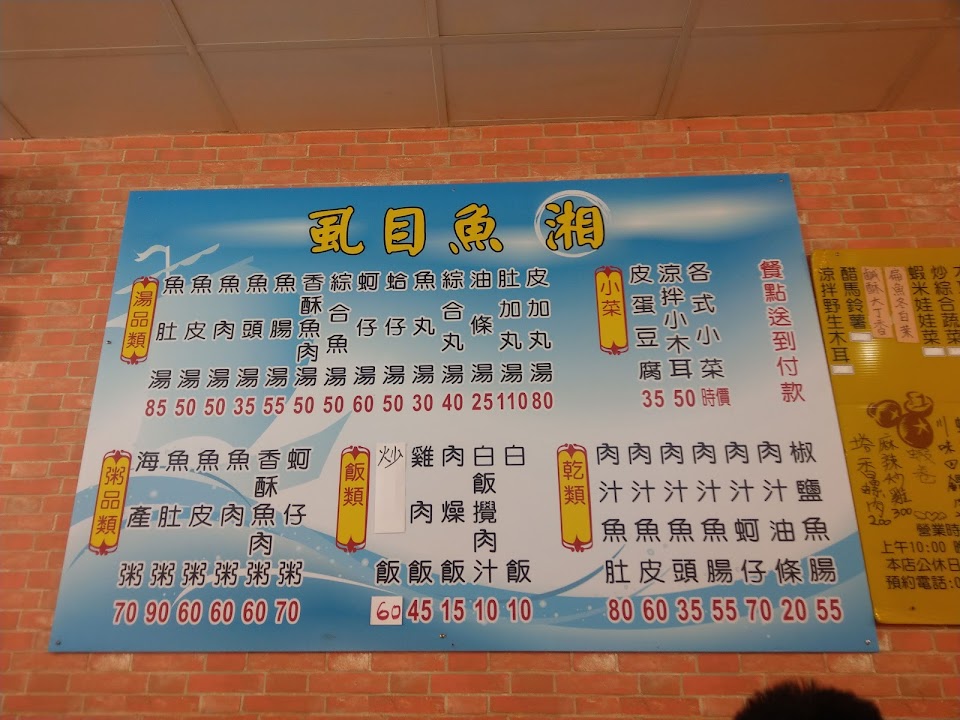 虱目魚 湘
湯品類
魚肚湯 85
魚皮湯 50
魚肉湯 50
魚頭湯 35
魚腸湯 55
香酥魚肉湯 50
綜合魚湯 50
蚵仔湯 60
蛤仔湯 50
魚丸湯 30
綜合丸湯 40
油條湯 25
肚加丸湯 110
皮加丸湯 80
小菜
皮蛋豆腐 35
涼拌小木耳 50
各式小菜 時價
餐點送到付款
粥品類
海產粥 70
魚肚粥 90
魚皮粥 60
魚肉粥 60
香酥魚肉粥 60
蚵仔粥 70
飯類
炒飯 60
雞肉飯 45
肉燥飯 15
白飯攪肉汁 10
白飯 10
乾類
肉汁魚肚 80
肉汁魚皮 60
肉汁魚頭 35
肉汁魚腸 55
肉汁蚵仔 70
肉汁油條 20
椒鹽魚腸 55
涼拌野生木耳
醋馬鈴薯
蝦米娃娃菜
炒綜合蔬菜
塔香螺肉 200
麻辣炒雞 300
川味
營業時
上午10:00
本店公休日
預約電話:0